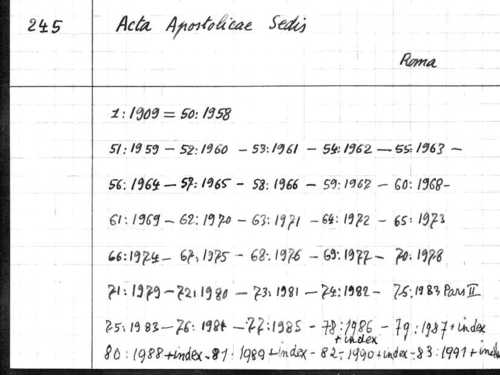 245 Acta Apostolicae Sedis
Roma
1:1909 = 50:1958
51:1959 - 52:1960 - 53:1961 - 54:1962 - 55:1963 -
56:1964 - 57:1965 - 58:1966 - 59:1967 - 60:1968 -
61:1969 - 62:1970 - 63:1971 - 64:1972 - 65:1973
66:1974 - 67:1975 - 68:1976 - 69:1977 - 70:1978
71:1979 - 72:1980 - 73:1981 - 74:1982 - 75:1983 Pars II
75:1983 - 76:1984 - 77:1985 - 78:1986 - 79:1987 + index
+ index
80:1988 + index - 81:1989 + index - 82:1990 + index - 83:1991 + index